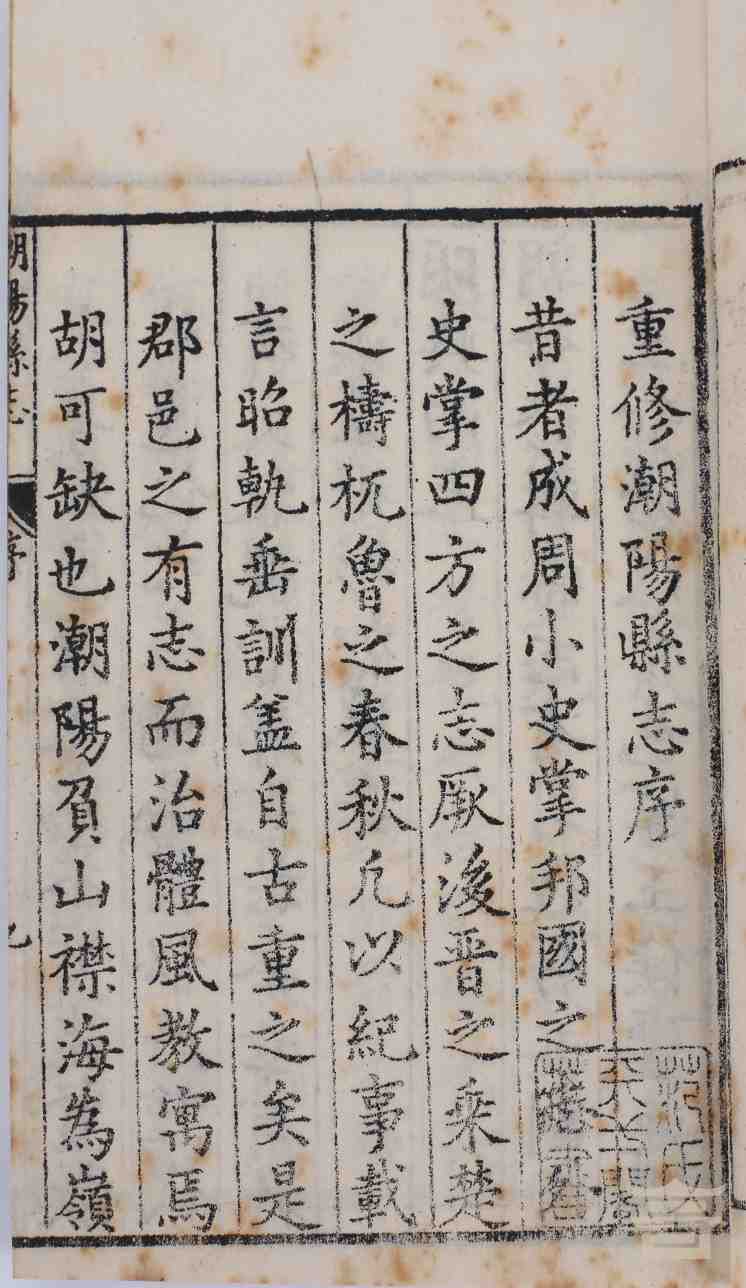 重修潮陽縣志序
昔者成周小史掌邦國之志外
史掌四方之志厥後晋之乗楚
之檮杌魯之春秋凢以紀事載
言昭軌垂訓盖自古重之矣是
郡邑之有志而治體風教寓焉
胡可缺也潮陽負山襟海為嶺
潮陽縣志
序
范氏
天一閣
藏書